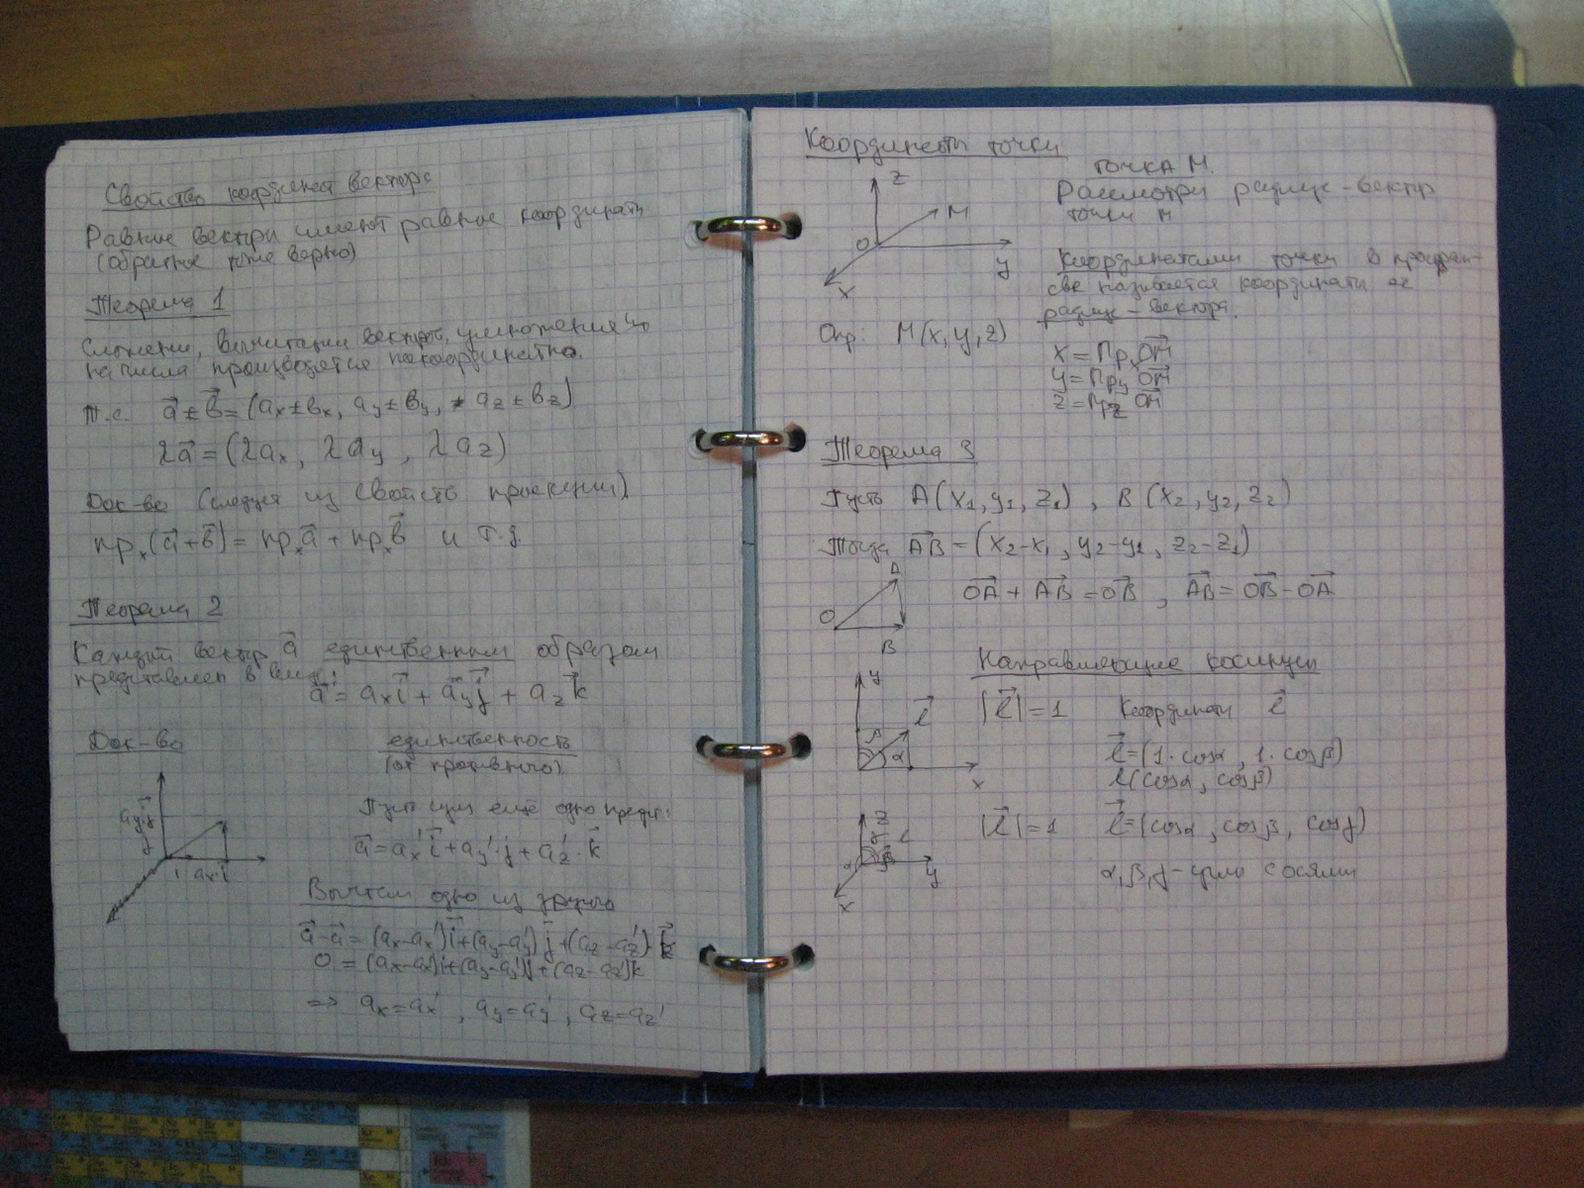 Свойство координат вектора
Равные вектры имеют равные координаты
(обратное тоже верно)
Теорема 1
Сложение, вычитание векторов, умножение
на числа производятся покоординатно.
Т.е. a⃗ ± b⃗ = (aₓ±bₓ, a_y±b_y, a_z±b_z)
λa⃗ = (λaₓ, λa_y, λa_z)
Док-во (следует из свойств проекции)
прₓ(a⃗+b⃗) = прₓa⃗ + прₓb⃗ и т.д.
Теорема 2
Каждый вектр a⃗ единственным образом
представлен в виде:
a⃗ = aₓi⃗ + a_yj⃗ + a_zk⃗
Док-во
единственность
(от противного)
a_yj⃗
j
i aₓi⃗
Пусть ещё одно предст:
a⃗ = aₓ'i⃗ + a_y'·j + a_z'·k⃗
Вычтем одно из другого
a⃗-a⃗ = (aₓ-aₓ')i⃗+(a_y-a_y')j⃗+(a_z-a_z')·k⃗
0 = (aₓ-aₓ')i+(a_y-a_y')j+(a_z-a_z')k
=> aₓ=aₓ', a_y=a_y', a_z=a_z'
Координаты точки
точка М.
Рассмотри радиус-вектр
точки М
z
M
O
y
x
Координатами точки в простран-
стве называется координаты её
радиус-вектора.
Опр: M(x, y, z)
x = Прₓ OM⃗
y = Пр_y OM⃗
z = Пр_z OM⃗
Теорема 3
Пусть A(x₁, y₁, z₁), B(x₂, y₂, z₂)
Тогда AB⃗ = (x₂-x₁, y₂-y₁, z₂-z₁)
A
O
B
OA⃗ + AB⃗ = OB⃗, AB⃗ = OB⃗ - OA⃗
Направляющие косинусы
y
l⃗
β
α
x
|l⃗| = 1 Координаты l⃗
l⃗ = (1·cosα, 1·cosβ)
l(cosα, cosβ)
z
γ l
α β
y
x
|l⃗| = 1 l⃗ = (cosα, cosβ, cosγ)
α, β, γ - углы с осями